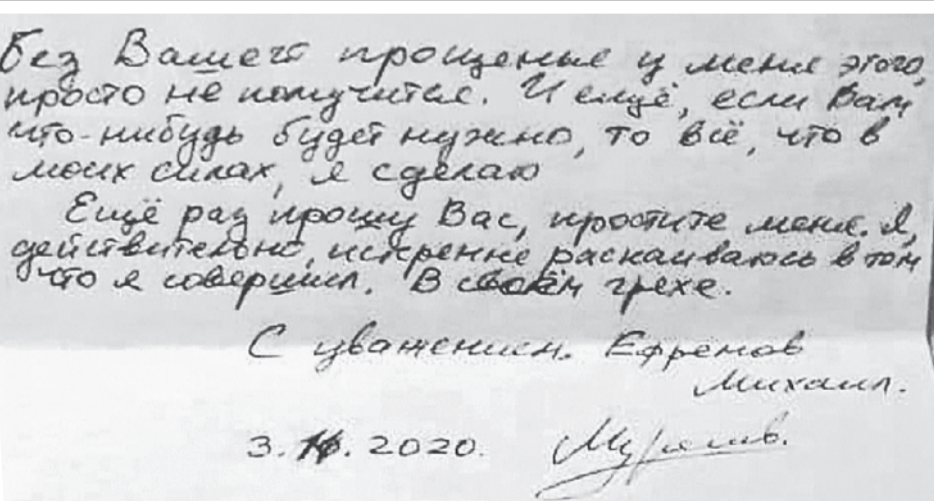 Без Вашего прощенье у меня этого,
просто не получится. И ещё, если Вам
что-нибудь будет нужно, то всё, что в
моих силах, я сделаю
Ещё раз прошу Вас, простите меня. Я,
действительно, искренне раскаиваюсь в том
что я совершил. В своём грехе.
С уважением. Ефремов
Михаил.
3. . 2020.